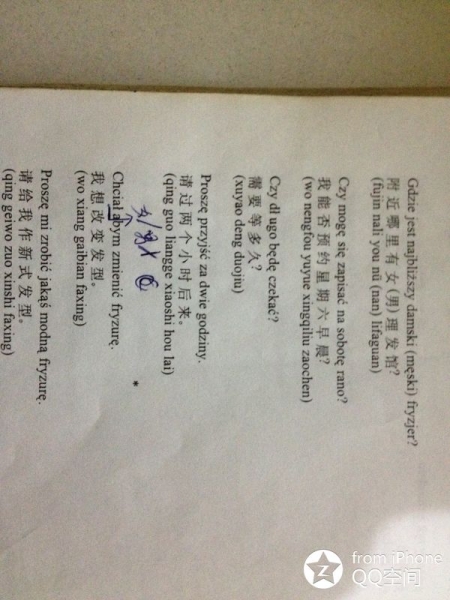 Gdzie jest najbliższy damski (męski) fryzjer?
附近哪里有女(男)理发馆?
(fujin nali you nü (nan) lifaguan)
Czy mogę się zapisać na sobotę rano?
我能否预约星期六早晨?
(wo nengfou yuyue xingqiliu zaochen)
Czy długo będę czekać?
需要等多久?
(xuyao deng duojiu)
Proszę przyjść za dwie godziny.
请过两个小时后来。
(qing guo liangge xiaoshi hou lai)
Chciałabym zmienić fryzurę.
我想改变发型。
(wo xiang gaibian faxing)
*
Proszę mi zrobić jakąś modną fryzurę.
请给我作新式发型。
(qing geiwo zuo xinshi faxing)
from iPhone
QQ空间